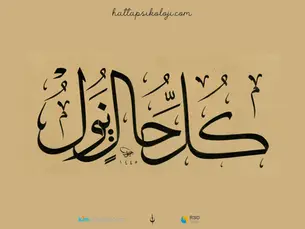 hattapsikoloji.com
كل حال يزول